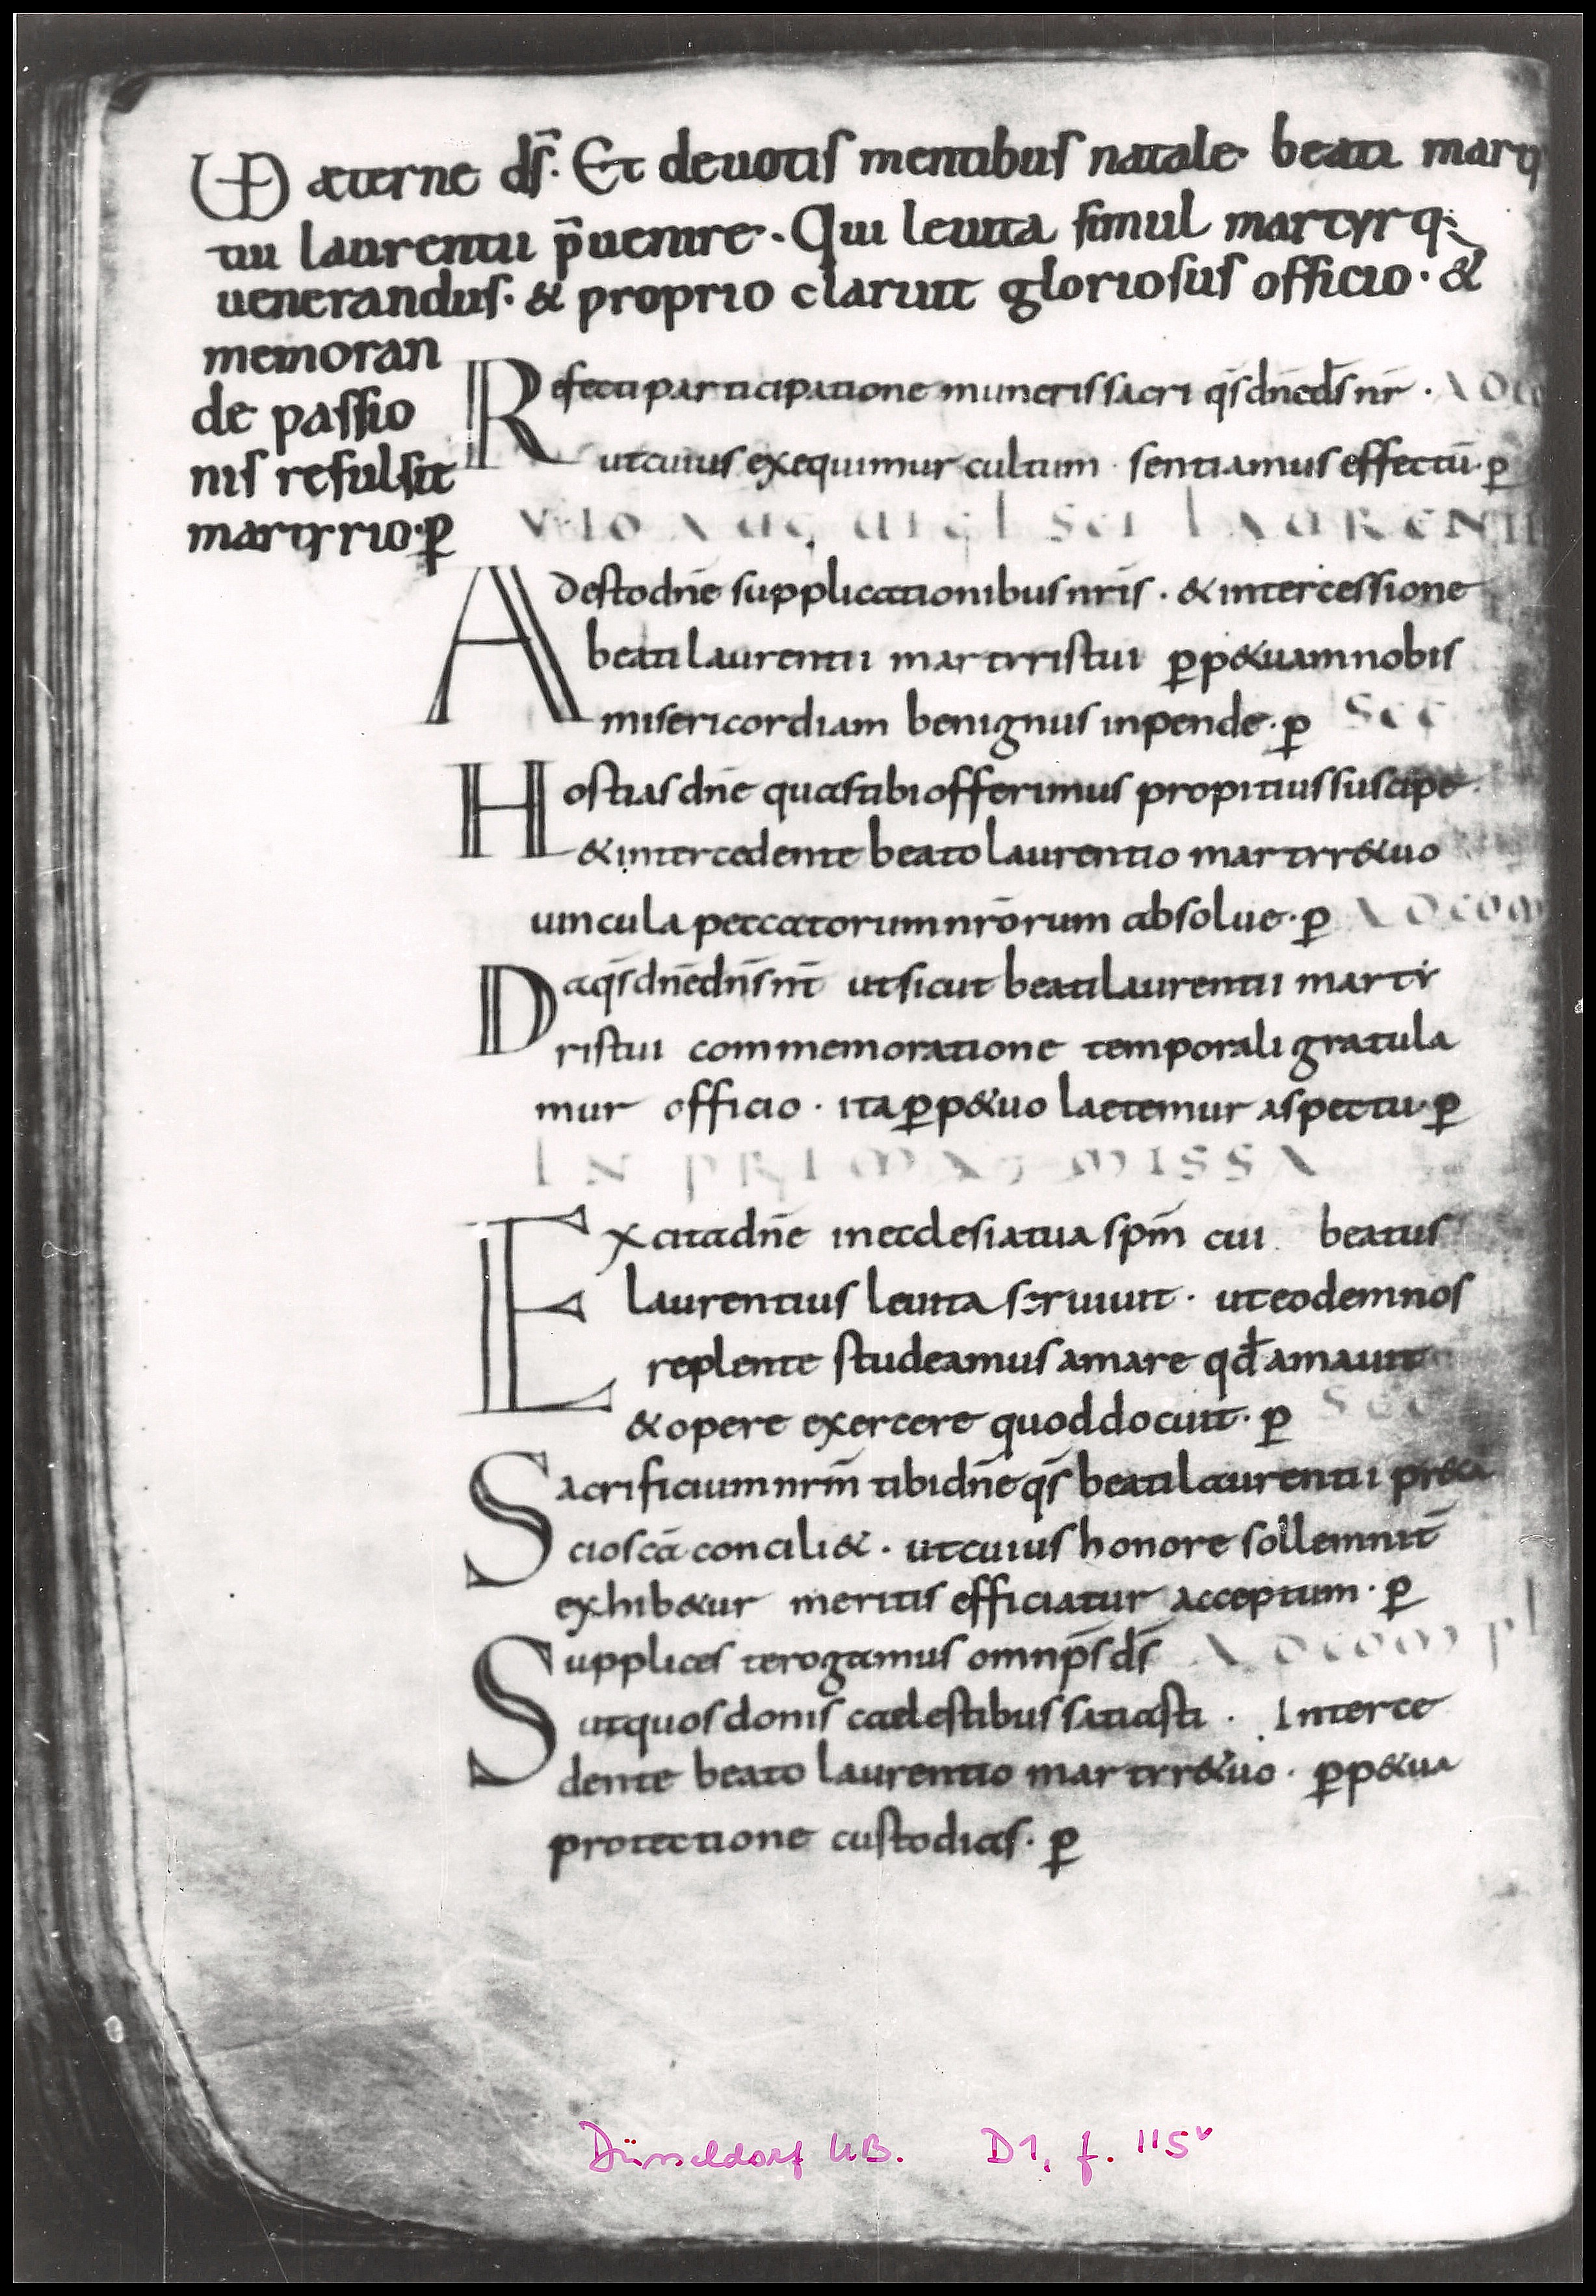 UD aeterne dſ̄. Et deuotis mentibus natale beati marty
rii laurentii p̄uenire. Qui leuita simul martyrq;
uenerandus. & proprio claruit gloriosus officio. &
memoran
de passio
nis refulsit
martyrio. ꝑ
Refecti participatione muneris sacri qs̄ dn̄e ds̄ nr̄. AD CO
ut cuius exequimur cultum sentiamus effectū. ꝑ
V ID AUG NT SCI LAURENTII
Adesto dn̄e supplicationibus nr̄is. & intercessione
beati laurentii martyris tui ꝑp&uam nobis
misericordiam benignus inpende. ꝑ SEC
Hostias dn̄e quas tibi offerimus propitius suscipe.
& intercedente beato laurentio martyr& uo
uincula peccatorum nr̄orum absolue. ꝑ AD COM
Da qs̄ dn̄e dn̄s nr̄ ut sicut beati laurentii marty
ris tui commemoratione temporali gratula
mur officio. ita ꝑp&uo laetemur aspectu. ꝑ
IN PRIMA MISSA
Excita dn̄e in ecclesia tua spm̄ cui beatus
laurentius leuita seruiuit. ut eodem nos
replente studeamus amare qd̄ amauit
& opere exercere quod docuit. ꝑ SEC
Sacrificium nrm̄ tibi dn̄e qs̄ beati laurentii preca
tio scā concili&. ut cuius honore sollemnit̄
exhib&ur meritis efficiatur acceptum. ꝑ
Supplices te rogamus omnp̄s ds̄ AD COMPL
ut quos donis caelestibus satiasti. Interce
dente beato laurentio martyr& uo. ꝑp&ua
protectione custodias. ꝑ
Düsseldorf UB. D1, f. 115v